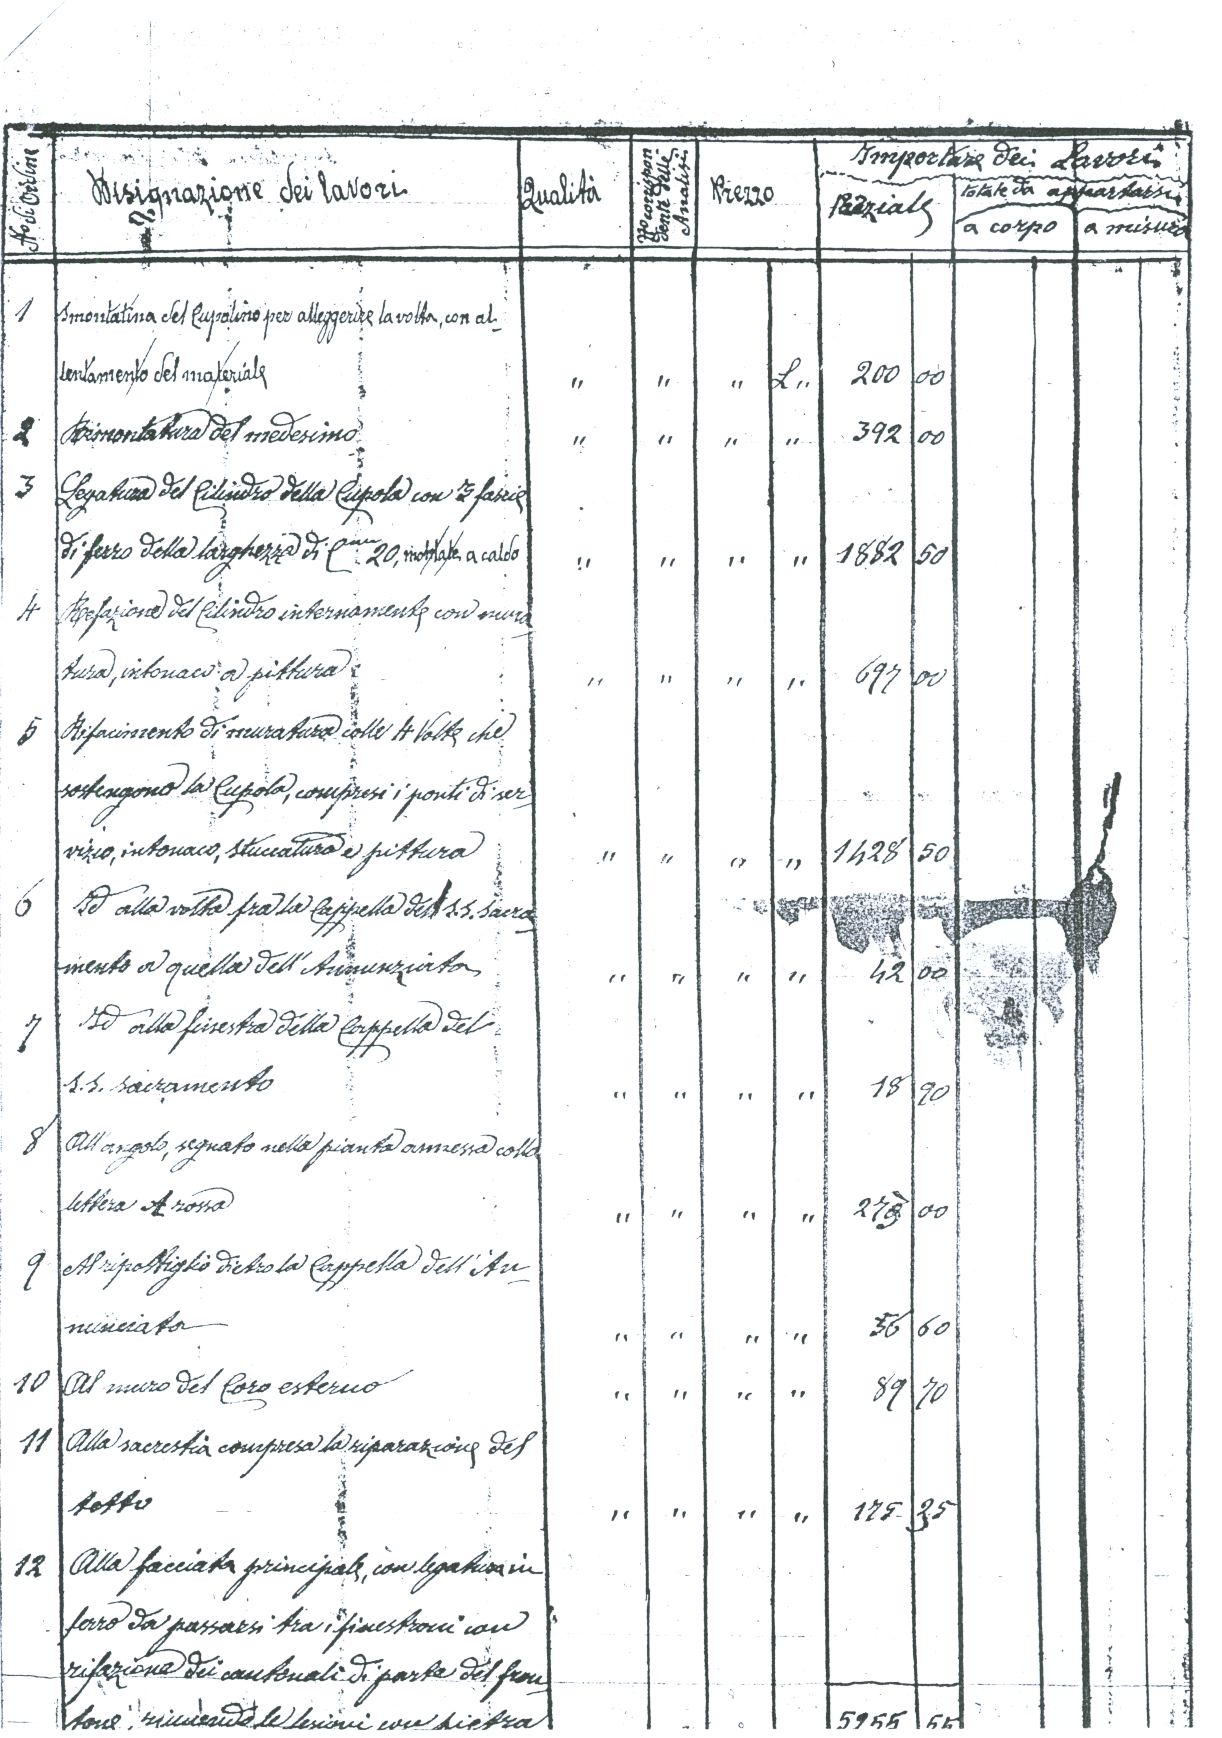 No di Ordine | Disignazione dei lavori | Qualità | No corrispon dente delle Analisi | Prezzo | Importare dei Lavori
Parziale | totale da appartarsi
a corpo | a misura
1 Smontatina del Cupolino per alleggerire la volta, con al-
lentamento del materiale " " " L" 200 00
2 Rimontatura del medesimo " " " " 392 00
3 Legatura del Cilindro della Cupola con 3 fascie
di ferro della larghezza di 20, montate a caldo " " " " 1882 50
4 Refazione del Cilindro internamente con mura
tura, intonaci a pittura " " " " 697 00
5 Rifacimento di muratura colle 4 Volte che
sostengono la Cupola, compresi i ponti di ser-
vizio, intonaco, stuccatura e pittura " " " " 1428 50
6 Id alla volta fra la Cappella del S.S. Sacra
mento a quella dell'Annunziata " " " " 42 00
7 Id alla finestra della Cappella del
S.S. Sacramento " " " " 18 90
8 All'angolo, segnato nella pianta annessa colla
lettera A rossa " " " " 00
9 Al ripostiglio dietro la Cappella dell'An-
nunciata " " " " 56 60
10 Al muro del Coro esterno " " " " 89 70
11 Alla sacrestia compresa la riparazione del
tetto " " " " 175 25
12 Alla facciata principale, con legatura in
ferro da passarsi tra i finestroni con
rifazione dei cantonali di parte del fron-
tone, riunendo le lesioni con pietra 5255 55